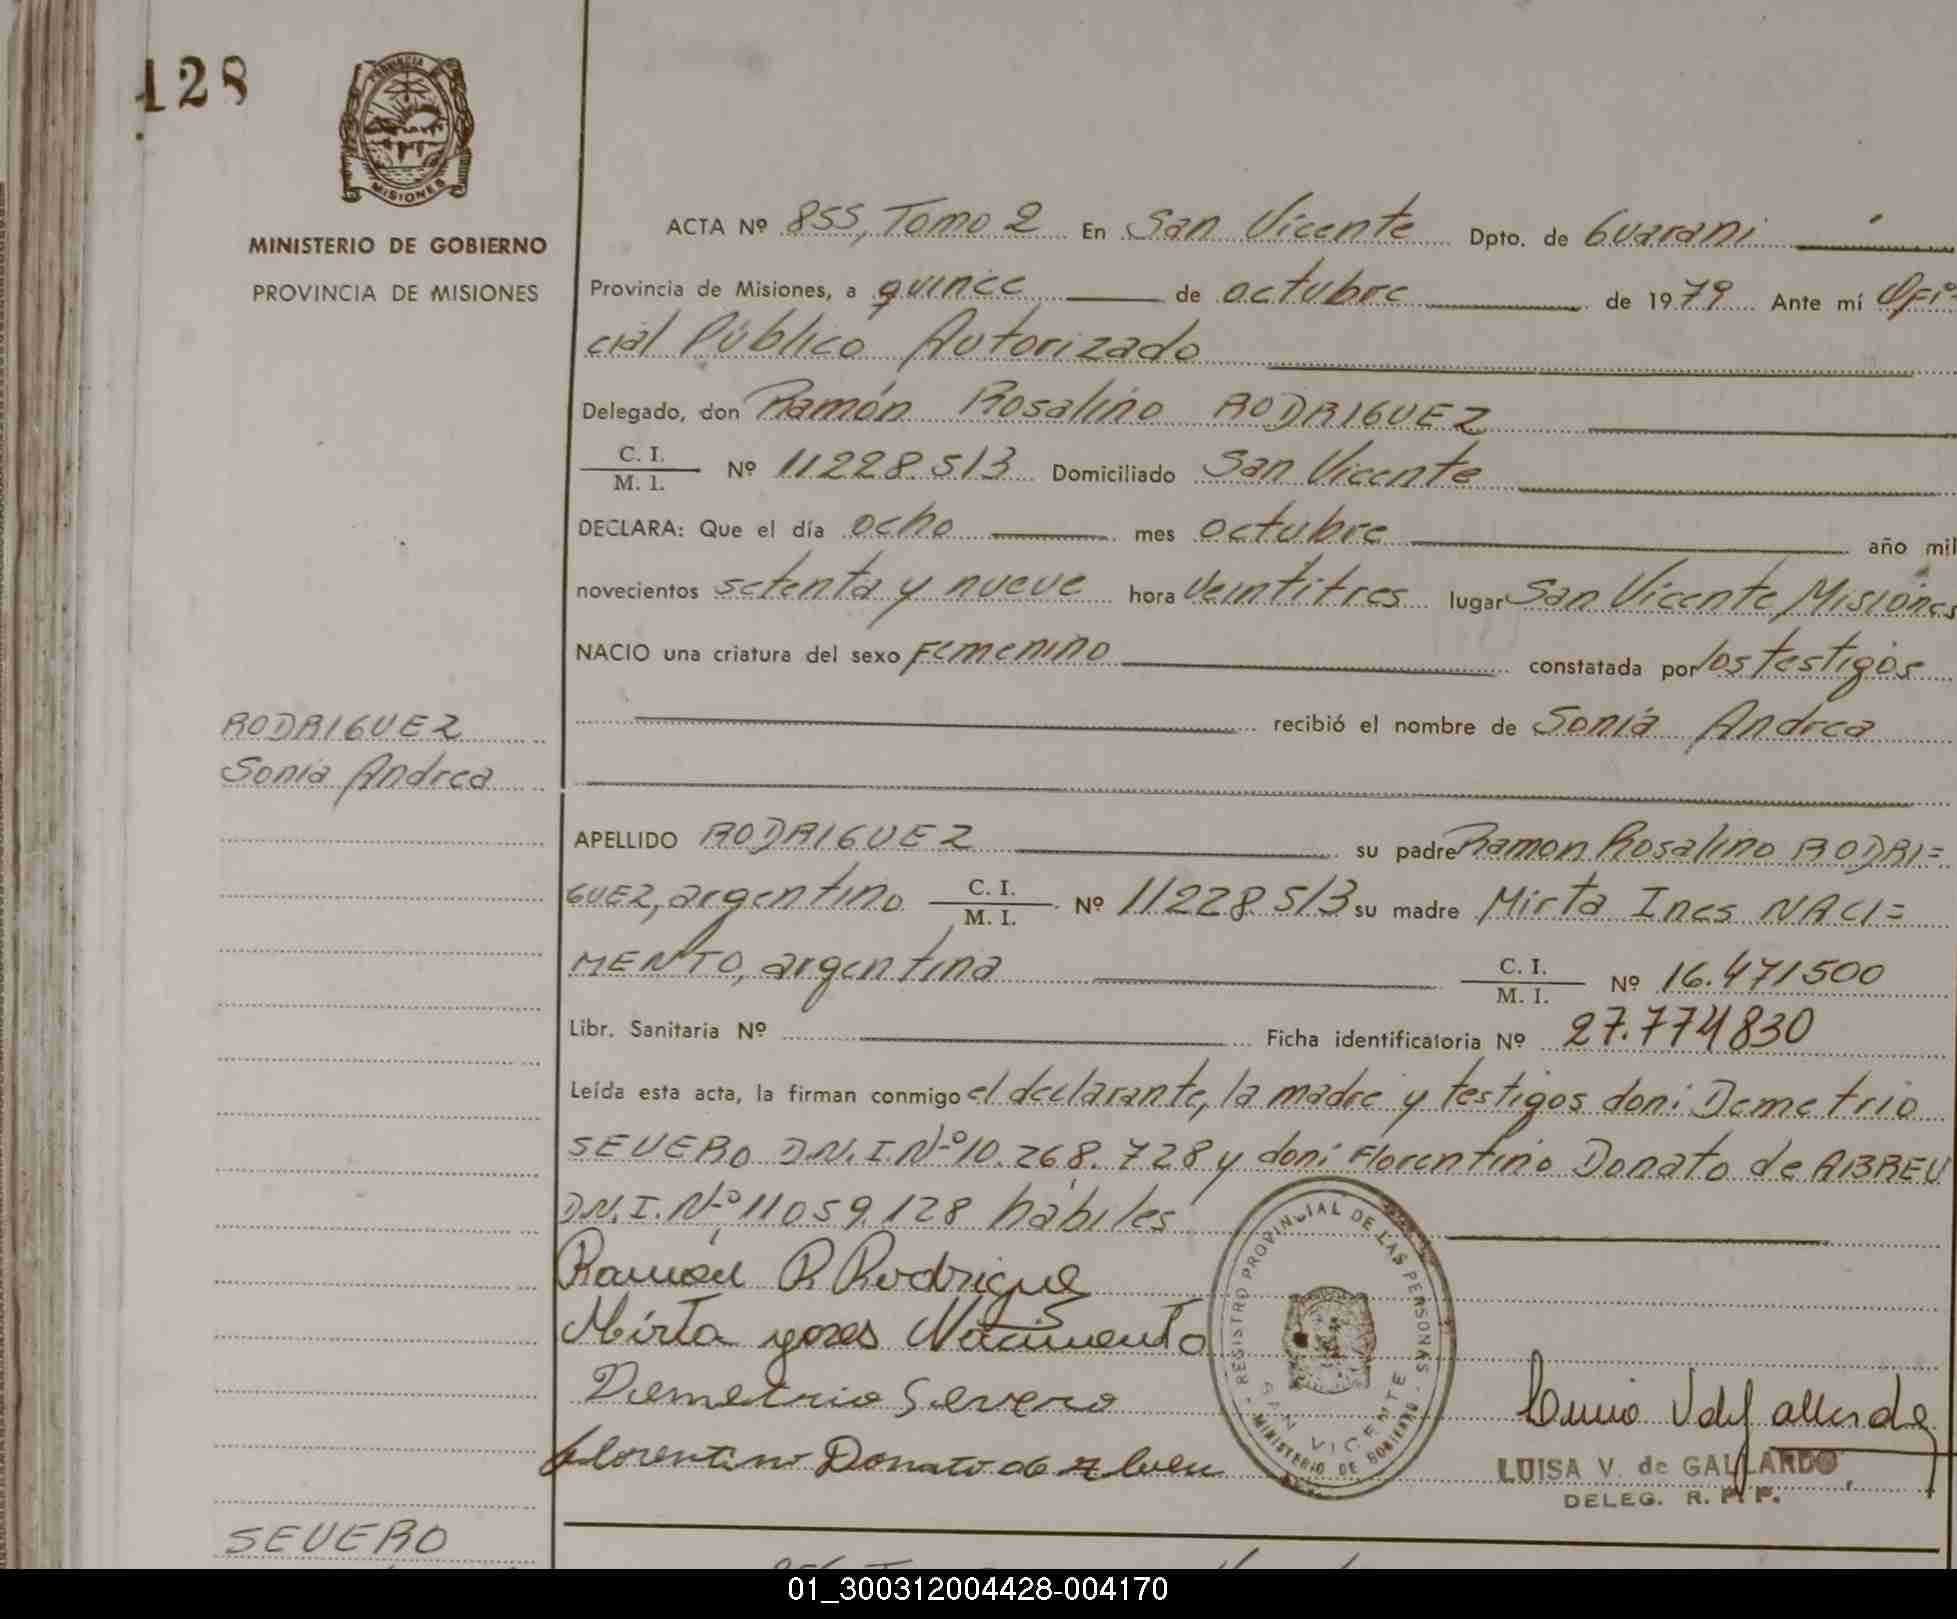 128
PROVINCIA DE
MISIONES
MINISTERIO DE GOBIERNO
PROVINCIA DE MISIONES
ACTA Nº 855, Tomo 2 En San Vicente Dpto. de Guarani
Provincia de Misiones, a quince de octubre de 1979 Ante mí Ofi=
cial Público Autorizado
Delegado, don Ramón Rosalino RODRIGUEZ
C. I.
M. I. Nº 11228.513 Domiciliado San Vicente
DECLARA: Que el día ocho mes octubre año mil
novecientos setenta y nueve hora veintitres lugar San Vicente, Misiones
NACIO una criatura del sexo Femenino constatada por los testigos
recibió el nombre de Sonia Andrea
RODRIGUEZ
Sonia Andrea
APELLIDO RODRIGUEZ su padre Ramon Rosalino RODRI=
GUEZ, argentino C. I. M. I. Nº 11228.513 su madre Mirta Ines NACI=
MENTO, argentina C. I. M. I. Nº 16.471500
Libr. Sanitaria Nº Ficha identificatoria Nº 27.774830
Leída esta acta, la firman conmigo el declarante, la madre y testigos don: Demetrio
SEVERO D.N.I.Nº 10.268.728 y don: Florentino Donato de ABREU
D.N.I.Nº 11059.128 hábiles
Ramón R Rodrigue
Mirta ynes Nacimento
Demetrio Severo
florentino Donato de Abreu
REGISTRO PROVINCIAL DE LAS PERSONAS
SAN VICENTE
MINISTERIO DE GOBIERNO
LUISA V. de GALLARDO
DELEG. R. P. P.
SEVERO
01_300312004428-004170